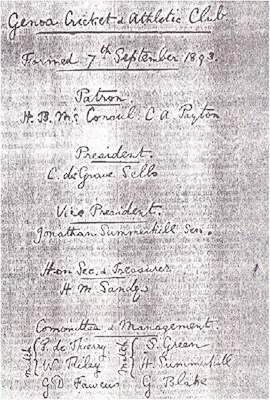 Genoa Cricket & Athletic Club
Formed 7th September 1893.
Patron
H. B. M's Consul C A Payton
President.
C. de Grave Sells
Vice President.
Jonathan Summerhill Sen.
Hon Sec. & Treasurer
H M Sandys
Committee & Management.
F. de Thierry S. Green
W. Riley H. Summerhill
G D Fawcus G Blake